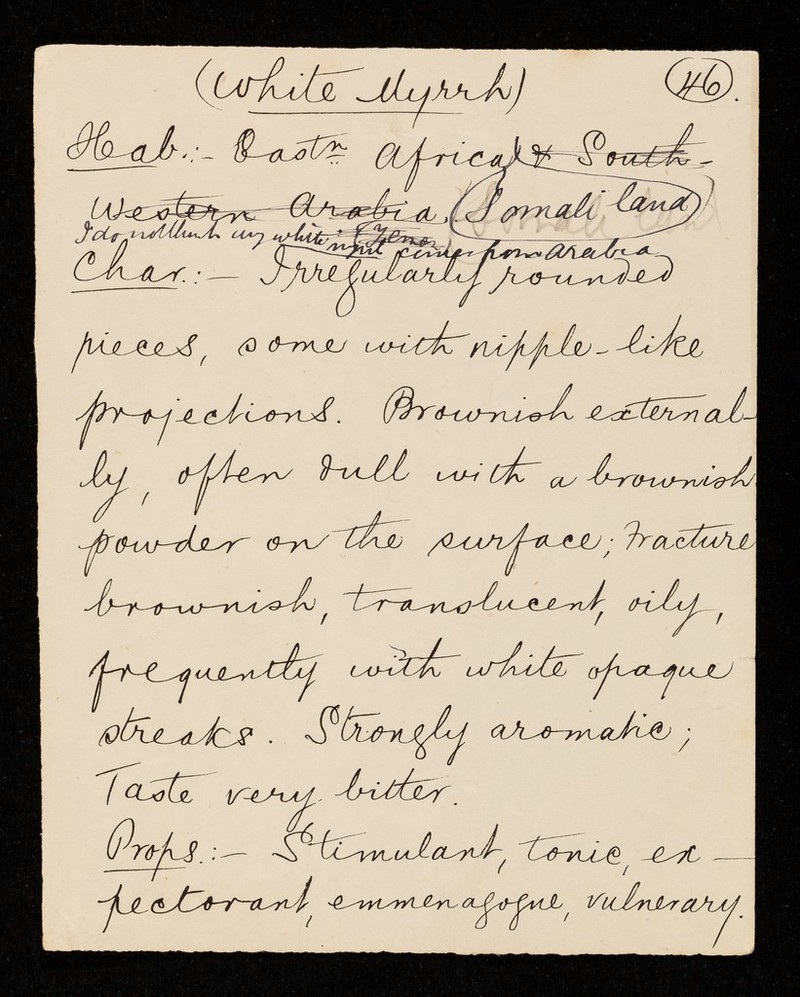 (White Myrrh) 46.
Hab.:- Eastn Africa & South-
Western Arabia. (Somali land)
I do not think any white myrrh comes from Arabia
Char.:- Irregularly rounded
pieces, some with nipple-like
projections. Brownish external-
ly, often dull with a brownish
powder on the surface; Fracture
brownish, translucent, oily,
frequently with white opaque
streaks. Strongly aromatic;
Taste very bitter.
Props.:- Stimulant, tonic, ex-
pectorant, emmenagogue, vulnerary.